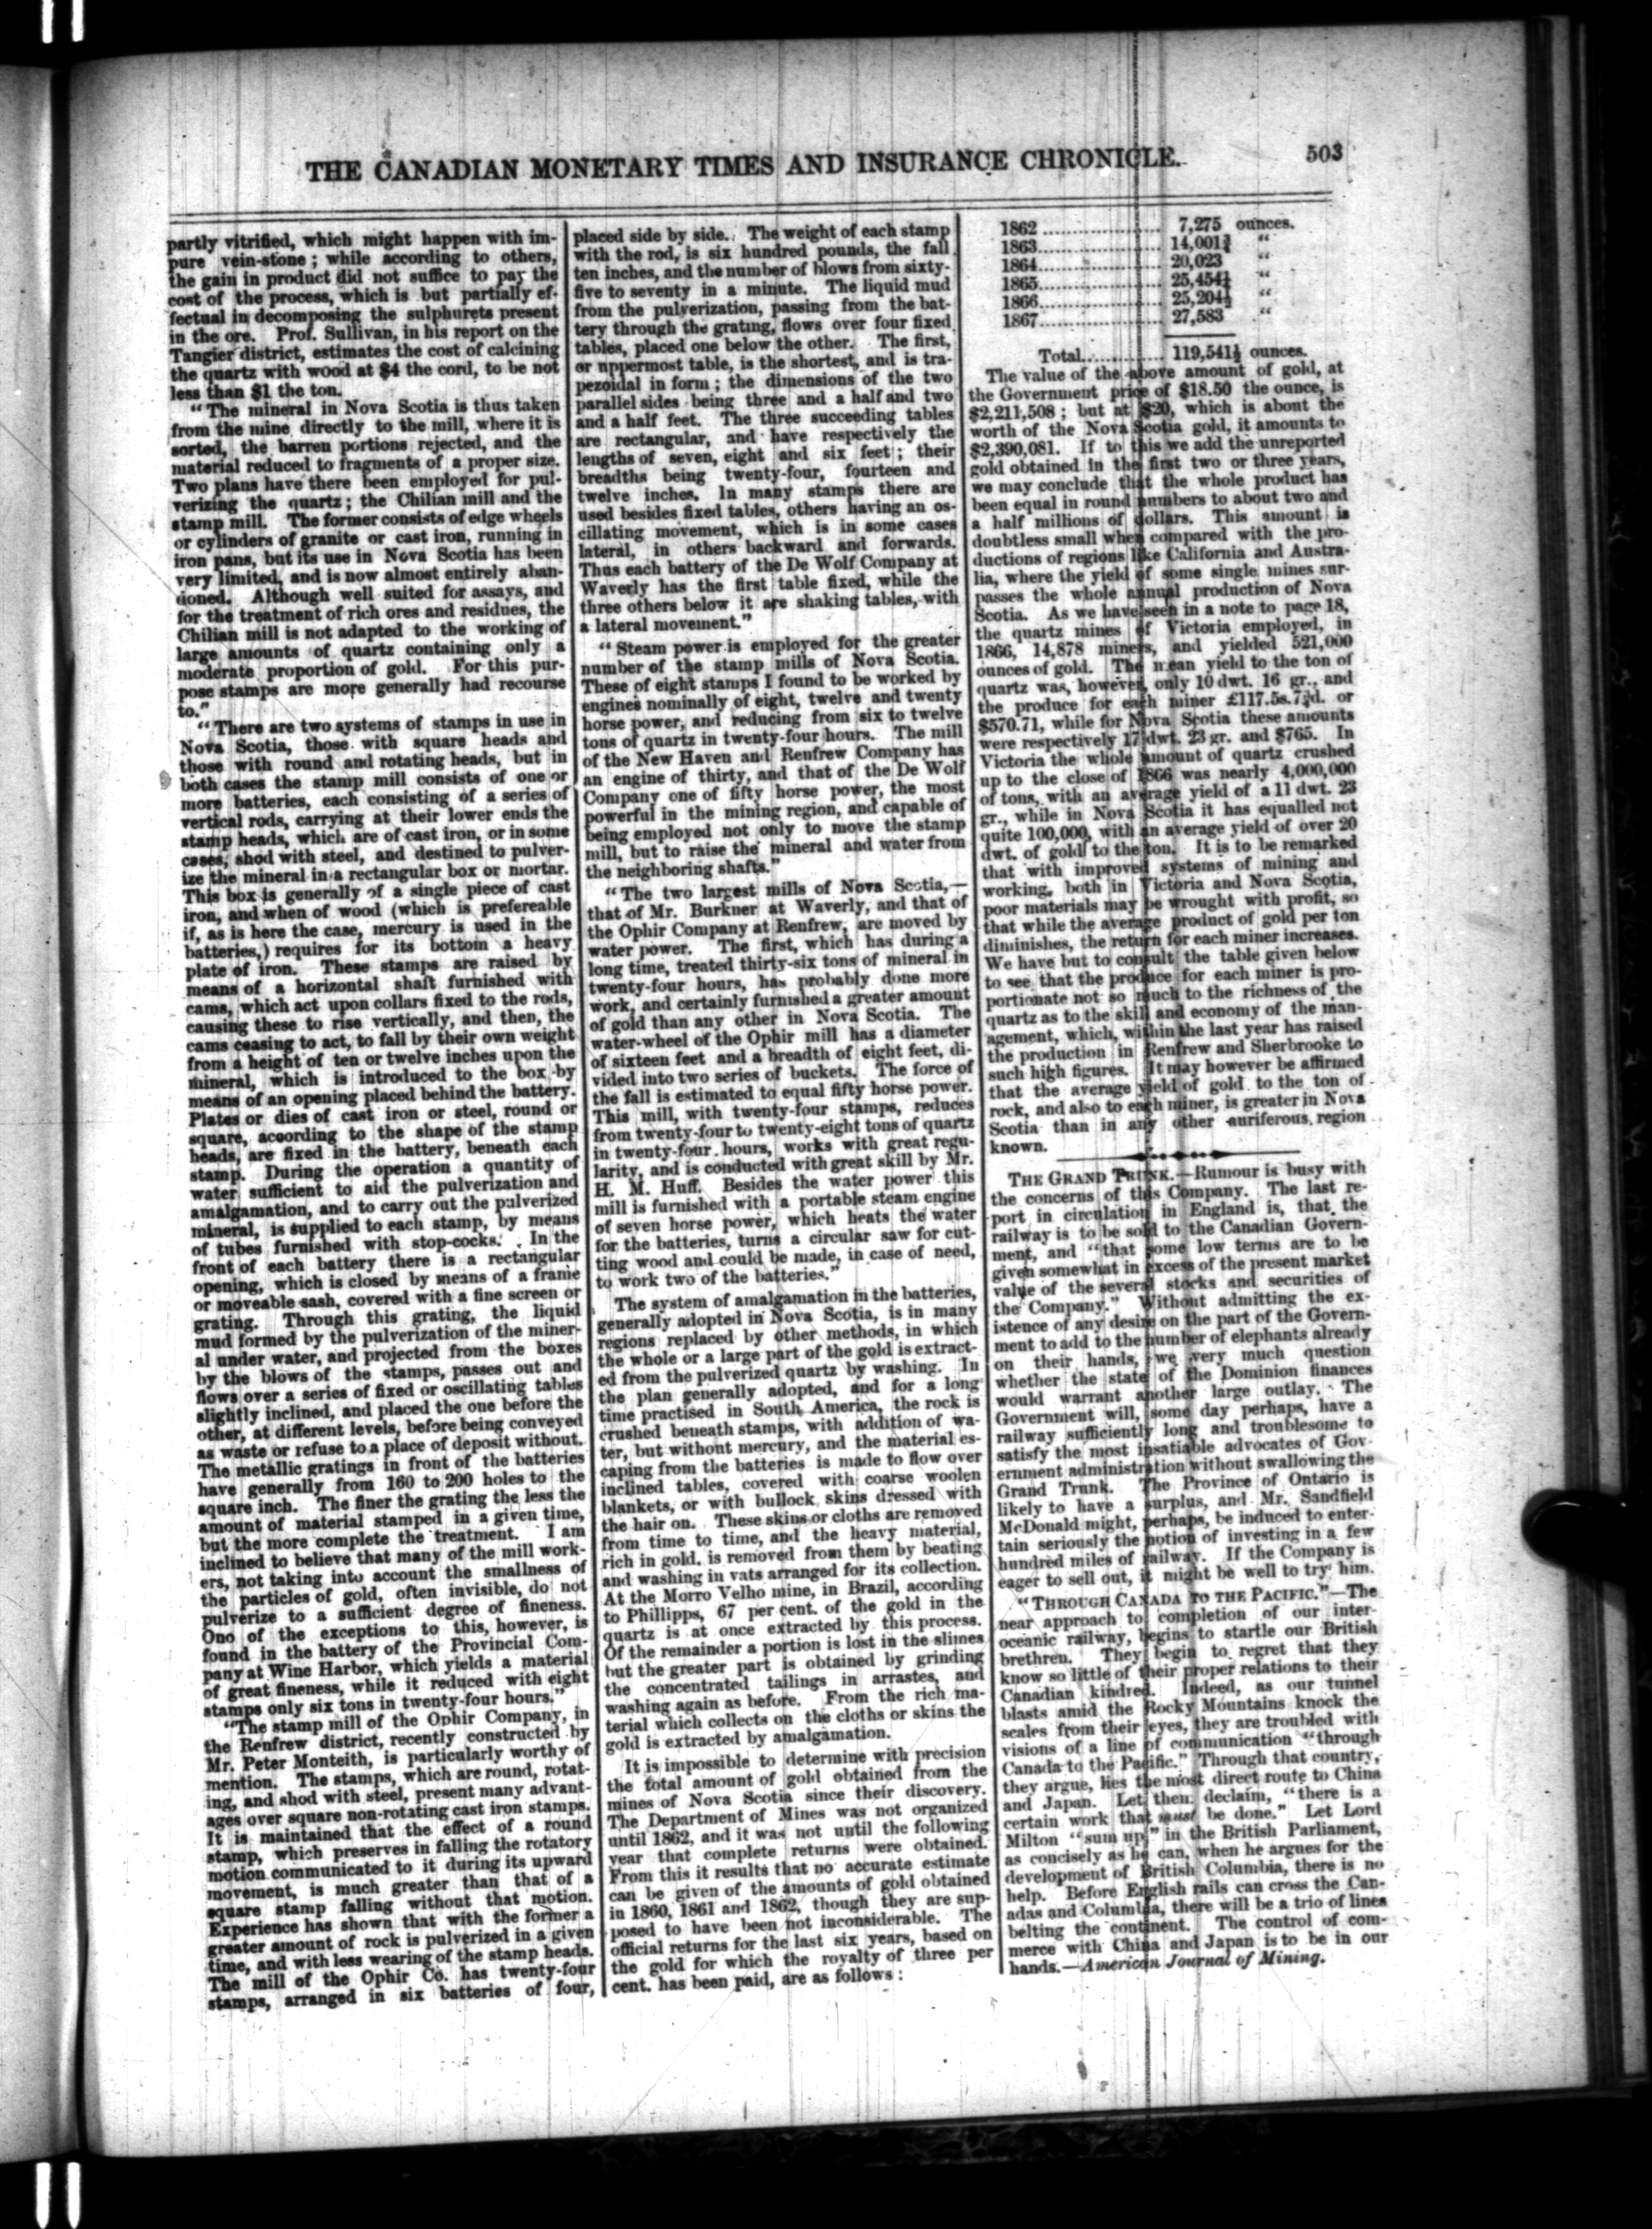 THE CANADIAN MONETARY TIMES AND INSURANCE CHRONICLE.
503
partly vitrified, which might happen with im-
pure vein-stone ; while according to others,
the gain in product did not suffice to pay the
cost of the process, which is but partially ef-
fectual in decomposing the sulphurets present
in the ore. Prof. Sullivan, in his report on the
Tangier district, estimates the cost of calcining
the quartz with wood at $4 the cord, to be not
less than $1 the ton.
"The mineral in Nova Scotia is thus taken
from the mine directly to the mill, where it is
sorted, the barren portions rejected, and the
material reduced to fragments of a proper size.
Two plans have there been employed for pul-
verizing the quartz; the Chilian mill and the
stamp mill. The former consists of edge wheels
or cylinders of granite or cast iron, running in
iron pans, but its use in Nova Scotia has been
very limited, and is now almost entirely aban-
doned. Although well suited for assays, and
for the treatment of rich ores and residues, the
Chilian mill is not adapted to the working of
large amounts of quartz containing only a
moderate proportion of gold. For this pur-
pose stamps are more generally had recourse
to."
"There are two systems of stamps in use in
Nova Scotia, those with square heads and
those with round and rotating heads, but in
both cases the stamp mill consists of one or
more batteries, each consisting of a series of
vertical rods, carrying at their lower ends the
stamp heads, which are of cast iron, or in some
cases, shod with steel, and destined to pulver-
ize the mineral in a rectangular box or mortar.
This box is generally of a single piece of cast
iron, and when of wood (which is prefereable
if, as is here the case, mercury is used in the
batteries,) requires for its bottom a heavy
plate of iron. These stamps are raised by
means of a horizontal shaft furnished with
cams, which act upon collars fixed to the rods,
causing these to rise vertically, and then, the
cams ceasing to act, to fall by their own weight
from a height of ten or twelve inches upon the
mineral, which is introduced to the box by
means of an opening placed behind the battery.
Plates or dies of cast iron or steel, round or
square, according to the shape of the stamp
heads, are fixed in the battery, beneath each
stamp. During the operation a quantity of
water sufficient to aid the pulverization and
amalgamation, and to carry out the pulverized
mineral, is supplied to each stamp, by means
of tubes furnished with stop-cocks. In the
front of each battery there is a rectangular
opening, which is closed by means of a frame
or moveable sash, covered with a fine screen or
grating. Through this grating, the liquid
mud formed by the pulverization of the miner-
al under water, and projected from the boxes
by the blows of the stamps, passes out and
flows over a series of fixed or oscillating tables
slightly inclined, and placed the one before the
other, at different levels, before being conveyed
as waste or refuse to a place of deposit without.
The metallic gratings in front of the batteries
have generally from 160 to 200 holes to the
square inch. The finer the grating the less the
amount of material stamped in a given time,
but the more complete the treatment. I am
inclined to believe that many of the mill work-
ers, not taking into account the smallness of
the particles of gold, often invisible, do not
pulverize to a sufficient degree of fineness.
One of the exceptions to this, however, is
found in the battery of the Provincial Com-
pany at Wine Harbor, which yields a material
of great fineness, while it reduced with eight
stamps only six tons in twenty-four hours."
"The stamp mill of the Ophir Company, in
the Renfrew district, recently constructed by
Mr. Peter Monteith, is particularly worthy of
mention. The stamps, which are round, rotat-
ing, and shod with steel, present many advant-
ages over square non-rotating cast iron stamps.
It is maintained that the effect of a round
stamp, which preserves in falling the rotatory
motion communicated to it during its upward
movement, is much greater than that of a
square stamp falling without that motion.
Experience has shown that with the former a
greater amount of rock is pulverized in a given
time, and with less wearing of the stamp heads.
The mill of the Ophir Co. has twenty-four
stamps, arranged in six batteries of four,
placed side by side. The weight of each stamp
with the rod, is six hundred pounds, the fall
ten inches, and the number of blows from sixty-
five to seventy in a minute. The liquid mud
from the pulverization, passing from the bat-
tery through the grating, flows over four fixed
tables, placed one below the other. The first,
or uppermost table, is the shortest, and is tra-
pezoidal in form ; the dimensions of the two
parallel sides being three and a half and two
and a half feet. The three succeeding tables
are rectangular, and have respectively the
lengths of seven, eight and six feet ; their
breadths being twenty-four, fourteen and
twelve inches. In many stamps there are
used besides fixed tables, others having an os-
cillating movement, which is in some cases
lateral, in others backward and forwards.
Thus each battery of the De Wolf Company at
Waverly has the first table fixed, while the
three others below it are shaking tables, with
a lateral movement."
"Steam power is employed for the greater
number of the stamp mills of Nova Scotia.
These of eight stamps I found to be worked by
engines nominally of eight, twelve and twenty
horse power, and reducing from six to twelve
tons of quartz in twenty-four hours. The mill
of the New Haven and Renfrew Company has
an engine of thirty, and that of the De Wolf
Company one of fifty horse power, the most
powerful in the mining region, and capable of
being employed not only to move the stamp
mill, but to raise the mineral and water from
the neighboring shafts."
"The two largest mills of Nova Scotia,—
that of Mr. Burkner at Waverly, and that of
the Ophir Company at Renfrew, are moved by
water power. The first, which has during a
long time, treated thirty-six tons of mineral in
twenty-four hours, has probably done more
work, and certainly furnished a greater amount
of gold than any other in Nova Scotia. The
water-wheel of the Ophir mill has a diameter
of sixteen feet and a breadth of eight feet, di-
vided into two series of buckets. The force of
the fall is estimated to equal fifty horse power.
This mill, with twenty-four stamps, reduces
from twenty-four to twenty-eight tons of quartz
in twenty-four hours, works with great regu-
larity, and is conducted with great skill by Mr.
H. M. Huff. Besides the water power this
mill is furnished with a portable steam engine
of seven horse power, which heats the water
for the batteries, turns a circular saw for cut-
ting wood and could be made, in case of need,
to work two of the batteries."
The system of amalgamation in the batteries,
generally adopted in Nova Scotia, is in many
regions replaced by other methods, in which
the whole or a large part of the gold is extract-
ed from the pulverized quartz by washing. In
the plan generally adopted, and for a long
time practised in South America, the rock is
crushed beneath stamps, with addition of wa-
ter, but without mercury, and the material es-
caping from the batteries is made to flow over
inclined tables, covered with coarse woolen
blankets, or with bullock skins dressed with
the hair on. These skins or cloths are removed
from time to time, and the heavy material,
rich in gold, is removed from them by beating
and washing in vats arranged for its collection.
At the Morro Velho mine, in Brazil, according
to Phillipps, 67 per cent. of the gold in the
quartz is at once extracted by this process.
Of the remainder a portion is lost in the slimes
but the greater part is obtained by grinding
the concentrated tailings in arrastes, and
washing again as before. From the rich ma-
terial which collects on the cloths or skins the
gold is extracted by amalgamation.
It is impossible to determine with precision
the total amount of gold obtained from the
mines of Nova Scotia since their discovery.
The Department of Mines was not organized
until 1862, and it was not until the following
year that complete returns were obtained.
From this it results that no accurate estimate
can be given of the amounts of gold obtained
in 1860, 1861 and 1862, though they are sup-
posed to have been not inconsiderable. The
official returns for the last six years, based on
the gold for which the royalty of three per
cent. has been paid, are as follows :
1862 .................... 7,275 ounces.
1863..................... 14,001¾ "
1864..................... 20,023 "
1865..................... 25,454½ "
1866..................... 25,204½ "
1867..................... 27,583 "
Total............. 119,541½ ounces.
The value of the above amount of gold, at
the Government price of $18.50 the ounce, is
$2,211,508 ; but at $20, which is about the
worth of the Nova Scotia gold, it amounts to
$2,390,081. If to this we add the unreported
gold obtained in the first two or three years,
we may conclude that the whole product has
been equal in round numbers to about two and
a half millions of dollars. This amount is
doubtless small when compared with the pro-
ductions of regions like California and Austra-
lia, where the yield of some single mines sur-
passes the whole annual production of Nova
Scotia. As we have seen in a note to page 18,
the quartz mines of Victoria employed, in
1866, 14,878 miners, and yielded 521,000
ounces of gold. The mean yield to the ton of
quartz was, however, only 10 dwt. 16 gr., and
the produce for each miner £117.5s.7½d. or
$570.71, while for Nova Scotia these amounts
were respectively 17 dwt. 23 gr. and $765. In
Victoria the whole amount of quartz crushed
up to the close of 1866 was nearly 4,000,000
of tons, with an average yield of a 11 dwt. 23
gr., while in Nova Scotia it has equalled not
quite 100,000, with an average yield of over 20
dwt. of gold to the ton. It is to be remarked
that with improved systems of mining and
working, both in Victoria and Nova Scotia,
poor materials may be wrought with profit, so
that while the average product of gold per ton
diminishes, the return for each miner increases.
We have but to consult the table given below
to see that the produce for each miner is pro-
portionate not so much to the richness of the
quartz as to the skill and economy of the man-
agement, which, within the last year has raised
the production in Renfrew and Sherbrooke to
such high figures. It may however be affirmed
that the average yield of gold to the ton of
rock, and also to each miner, is greater in Nova
Scotia than in any other auriferous region
known.
THE GRAND TRUNK.—Rumour is busy with
the concerns of this Company. The last re-
port in circulation in England is, that the
railway is to be sold to the Canadian Govern-
ment, and "that some low terms are to be
given somewhat in excess of the present market
value of the several stocks and securities of
the Company." Without admitting the ex-
istence of any desire on the part of the Govern-
ment to add to the number of elephants already
on their hands, we very much question
whether the state of the Dominion finances
would warrant another large outlay. The
Government will, some day perhaps, have a
railway sufficiently long and troublesome to
satisfy the most insatiable advocates of Gov-
ernment administration without swallowing the
Grand Trunk. The Province of Ontario is
likely to have a surplus, and Mr. Sandfield
McDonald might, perhaps, be induced to enter-
tain seriously the notion of investing in a few
hundred miles of railway. If the Company is
eager to sell out, it might be well to try him.
"THROUGH CANADA TO THE PACIFIC."—The
near approach to completion of our inter-
oceanic railway, begins to startle our British
brethren. They begin to regret that they
know so little of their proper relations to their
Canadian kindred. Indeed, as our tunnel
blasts amid the Rocky Mountains knock the
scales from their eyes, they are troubled with
visions of a line of communication "through
Canada to the Pacific." Through that country,
they argue, lies the most direct route to China
and Japan. Let them declaim, "there is a
certain work that must be done." Let Lord
Milton "sum up" in the British Parliament,
as concisely as he can, when he argues for the
development of British Columbia, there is no
help. Before English rails can cross the Can-
adas and Columbia, there will be a trio of lines
belting the continent. The control of com-
merce with China and Japan is to be in our
hands.—American Journal of Mining.